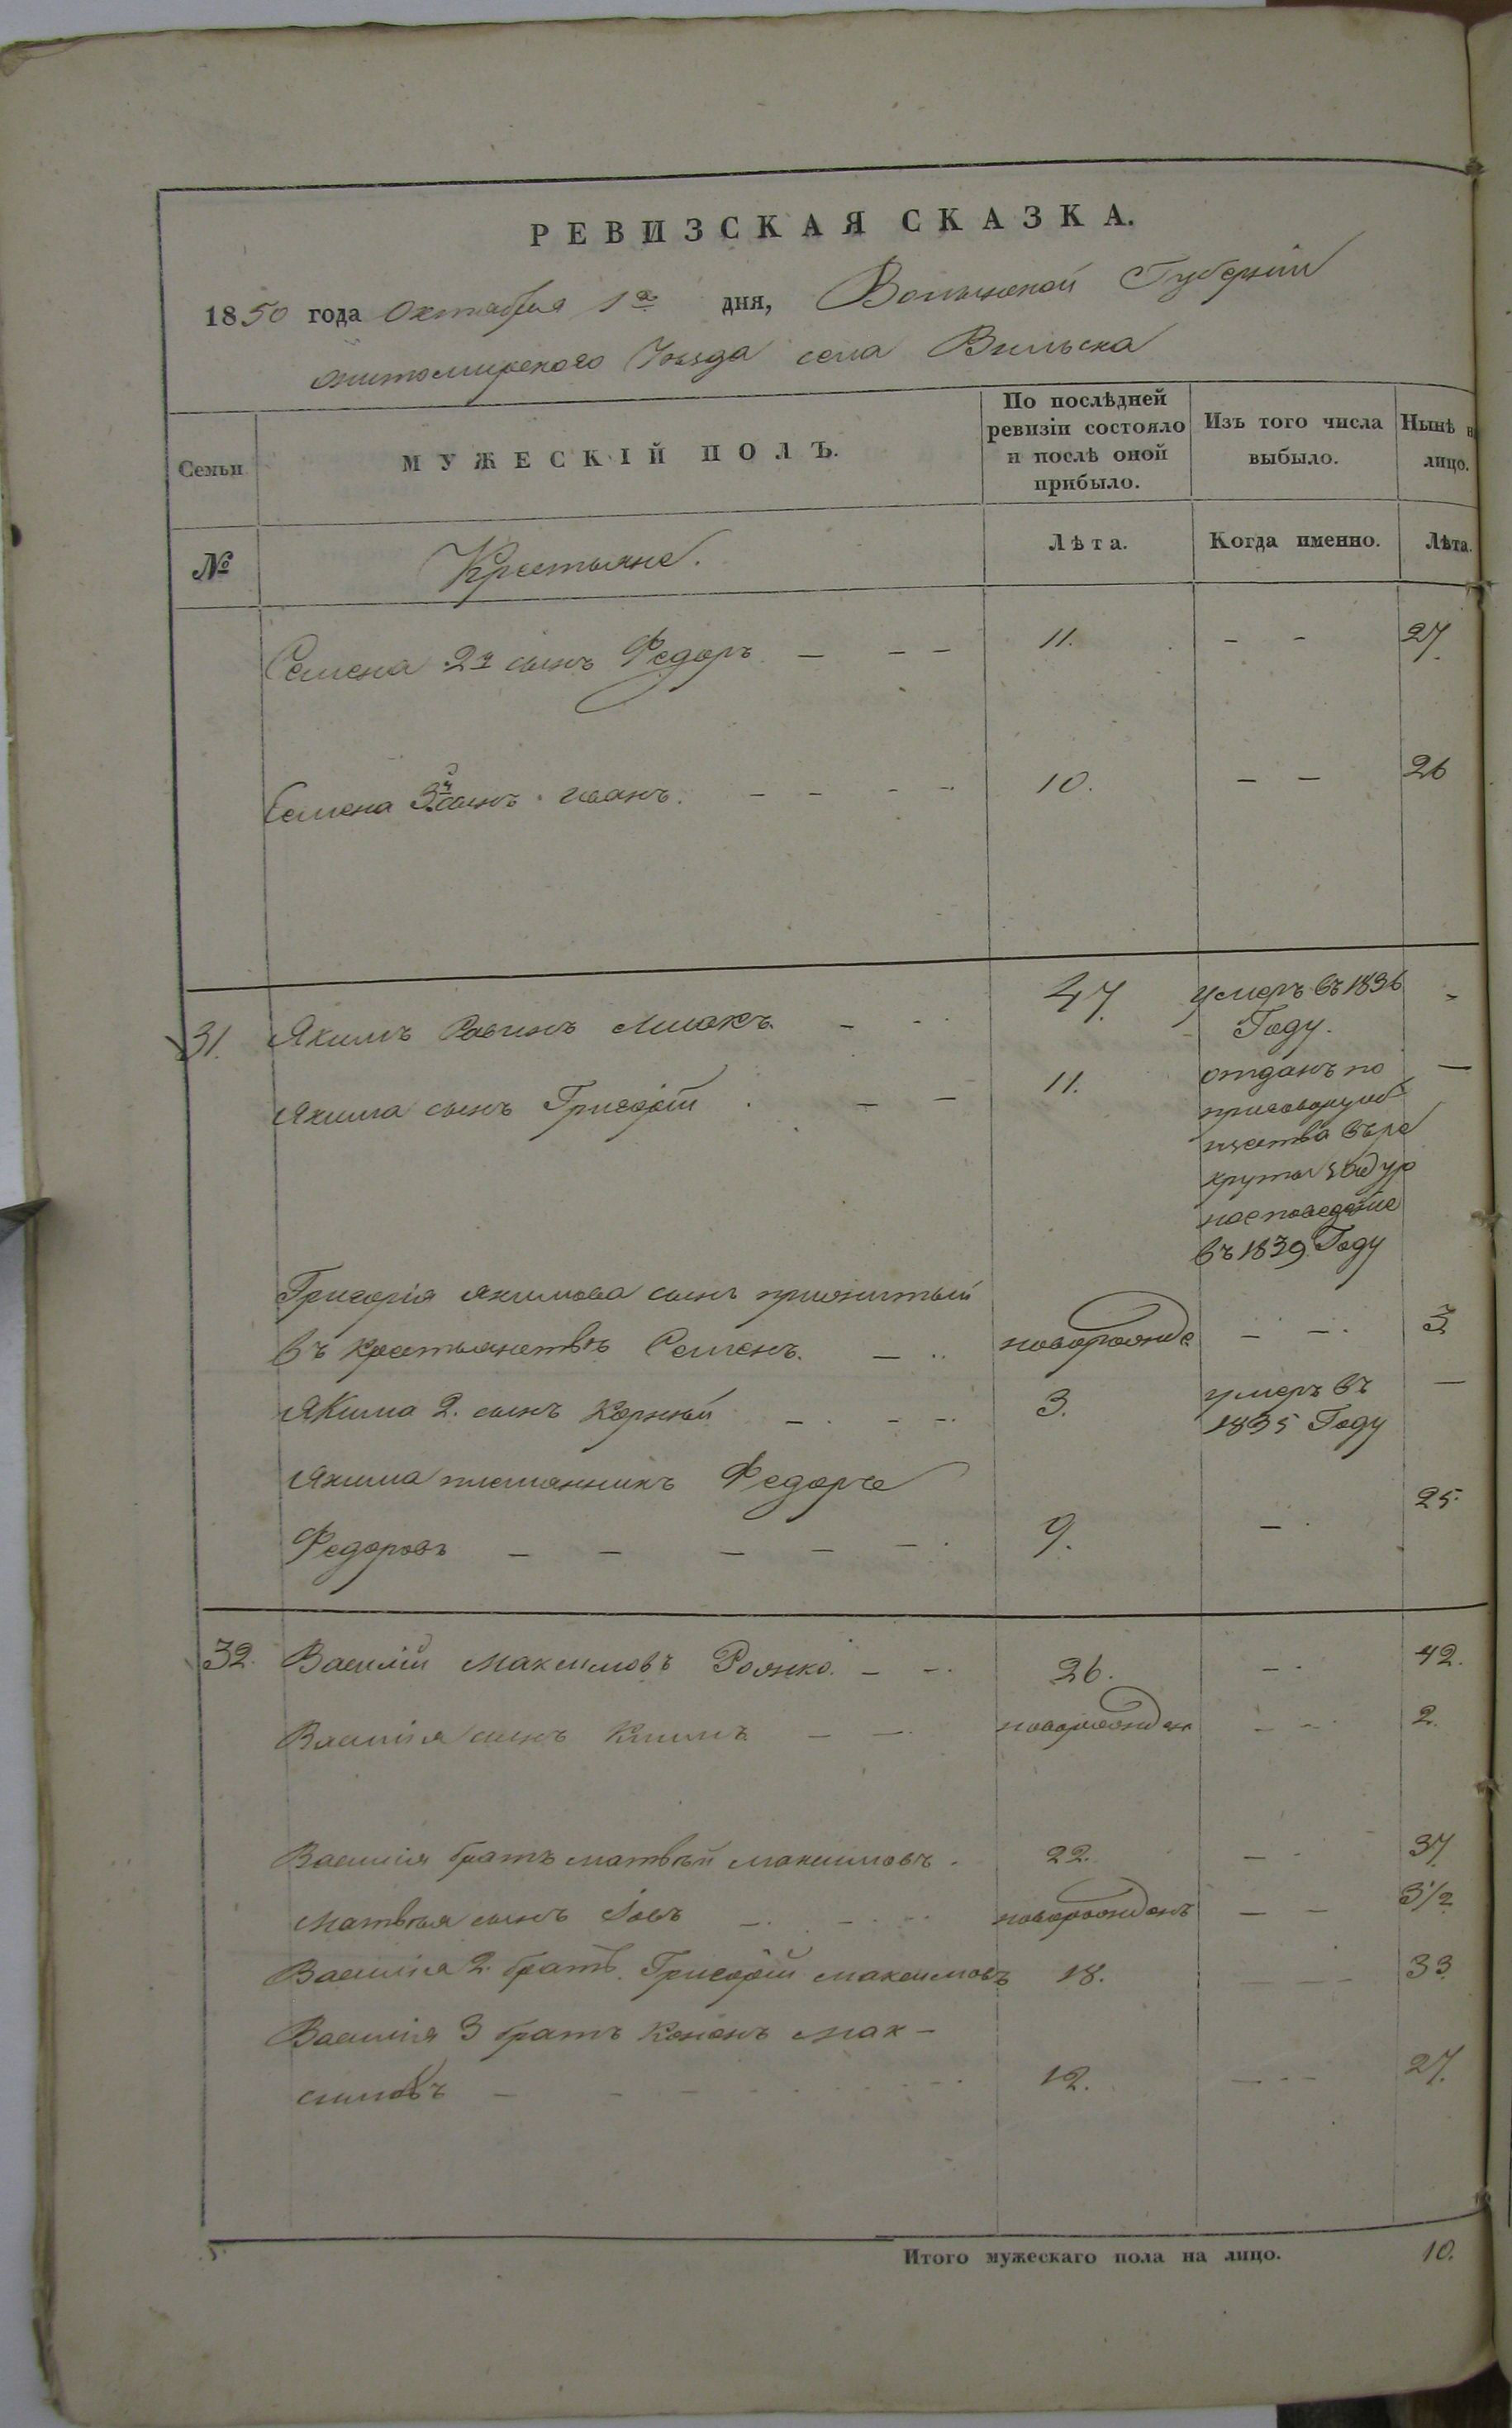 РЕВИЗСКАЯ СКАЗКА.
1850 года Октября 1го дня, Волынской Губерніи
житомирского Уѣзда села Вильска
Семьи
МУЖЕСКІЙ ПОЛЪ.
По послѣдней
ревизіи состояло
и послѣ оной
прибыло.
Изъ того числа
выбыло.
Нынѣ н
лицо.
№
Крестьяне.
Лѣта.
Когда именно.
Лѣта.
Семена 2й сынъ Федоръ — — — 11. — — 27.
Семена 3й сынъ иванъ. — — — — 10. — — 26
31. Якимъ Савинъ — — 47. умеръ въ 1836 —
Году.
Якима сынъ Григорій — — 11. отданъ по —
приговору об
щества въ ре
круты за дур
ное поведѣніе
въ 1839 Году
Григорія якимова сынъ прижитый
въ крестьянствѣ Семенъ. — новорожде — — 3
Якима 2. сынъ Корней — — — 3. умеръ въ —
1835 Году
Якима племянникъ Федоръ
Федоровъ — — — — — 9. — 25.
32. Василій Максимовъ Рожко. — — 26. — 42.
Василія сынъ Климъ — — новорожден — — 2.
Василія братъ матвѣй максимовъ. 22. — 37.
Матвѣя сынъ Іовъ — — новорожденъ — — 3 1/2
Василія 2. братъ Григорій максимовъ 18. — — — 33
Василія 3 братъ Кононъ Мак-
симовъ — — — — 12. — — — 27.
Итого мужескаго пола на лицо. 10.